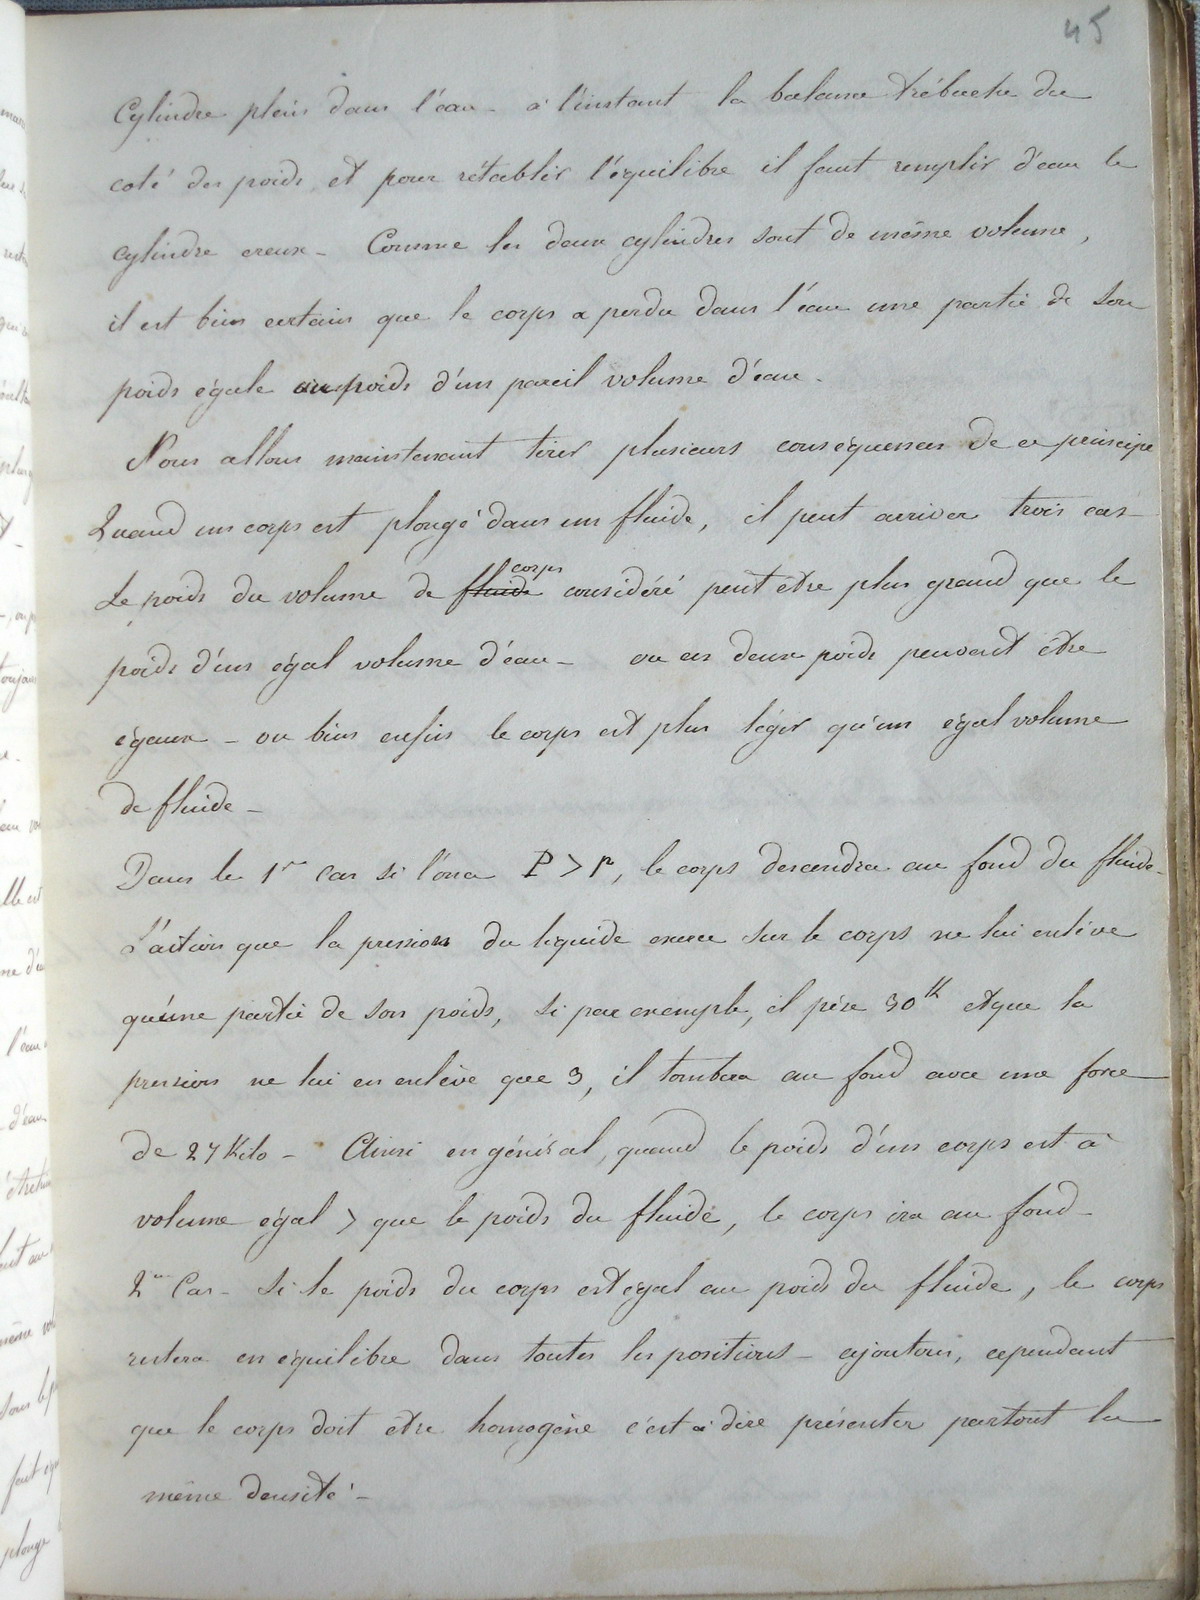 45
Cylindre plein dans l'eau - à l'instant la balance trébuche du
coté des poids, et pour rétablir l'équilibre il faut remplir d'eau le
cylindre creux - Comme les deux cylindres sont de même volume,
il est bien certain que le corps a perdu dans l'eau une partie de son
poids égale au poids d'un pareil volume d'eau.
Nous allons maintenant tirer plusieurs conséquences de ce principe
Quand un corps est plongé dans un fluide, il peut arriver trois cas -
Le poids du volume de fluide corps considéré peut être plus grand que le
poids d'un égal volume d'eau - ou ces deux poids peuvent être
égaux - ou bien enfin le corps est plus léger qu'un égal volume
de fluide -
Dans le 1er Cas si l'on a P > p, le corps descendra au fond du fluide -
L'action que la pression du liquide exerce sur le corps ne lui enlève
qu'une partie de son poids, si par exemple, il pèse 30 K et que la
pression ne lui en enlève que 3, il tombera au fond avec une force
de 27 Kilo - Ainsi en général, quand le poids d'un corps est à
volume égal > que le poids du fluide, le corps ira au fond -
2me Cas - Si le poids du corps est égal au poids du fluide, le corps
restera en équilibre dans toutes les positions - ajoutons, cependant
que le corps doit être homogène c'est à dire présenter partout la
même densité -